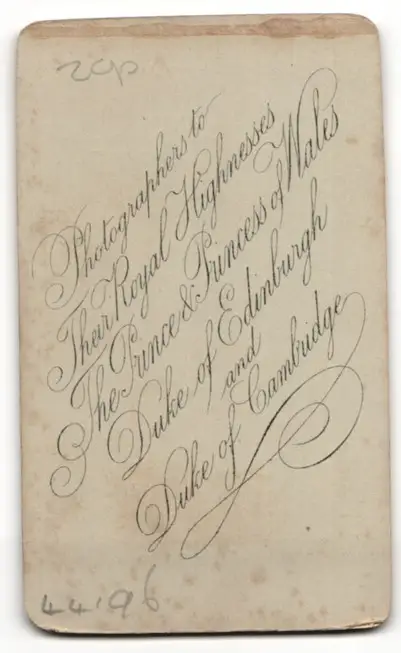 Photographers to
Their Royal Highnesses
The Prince & Princess of Wales
Duke of Edinburgh
and
Duke of Cambridge
44196